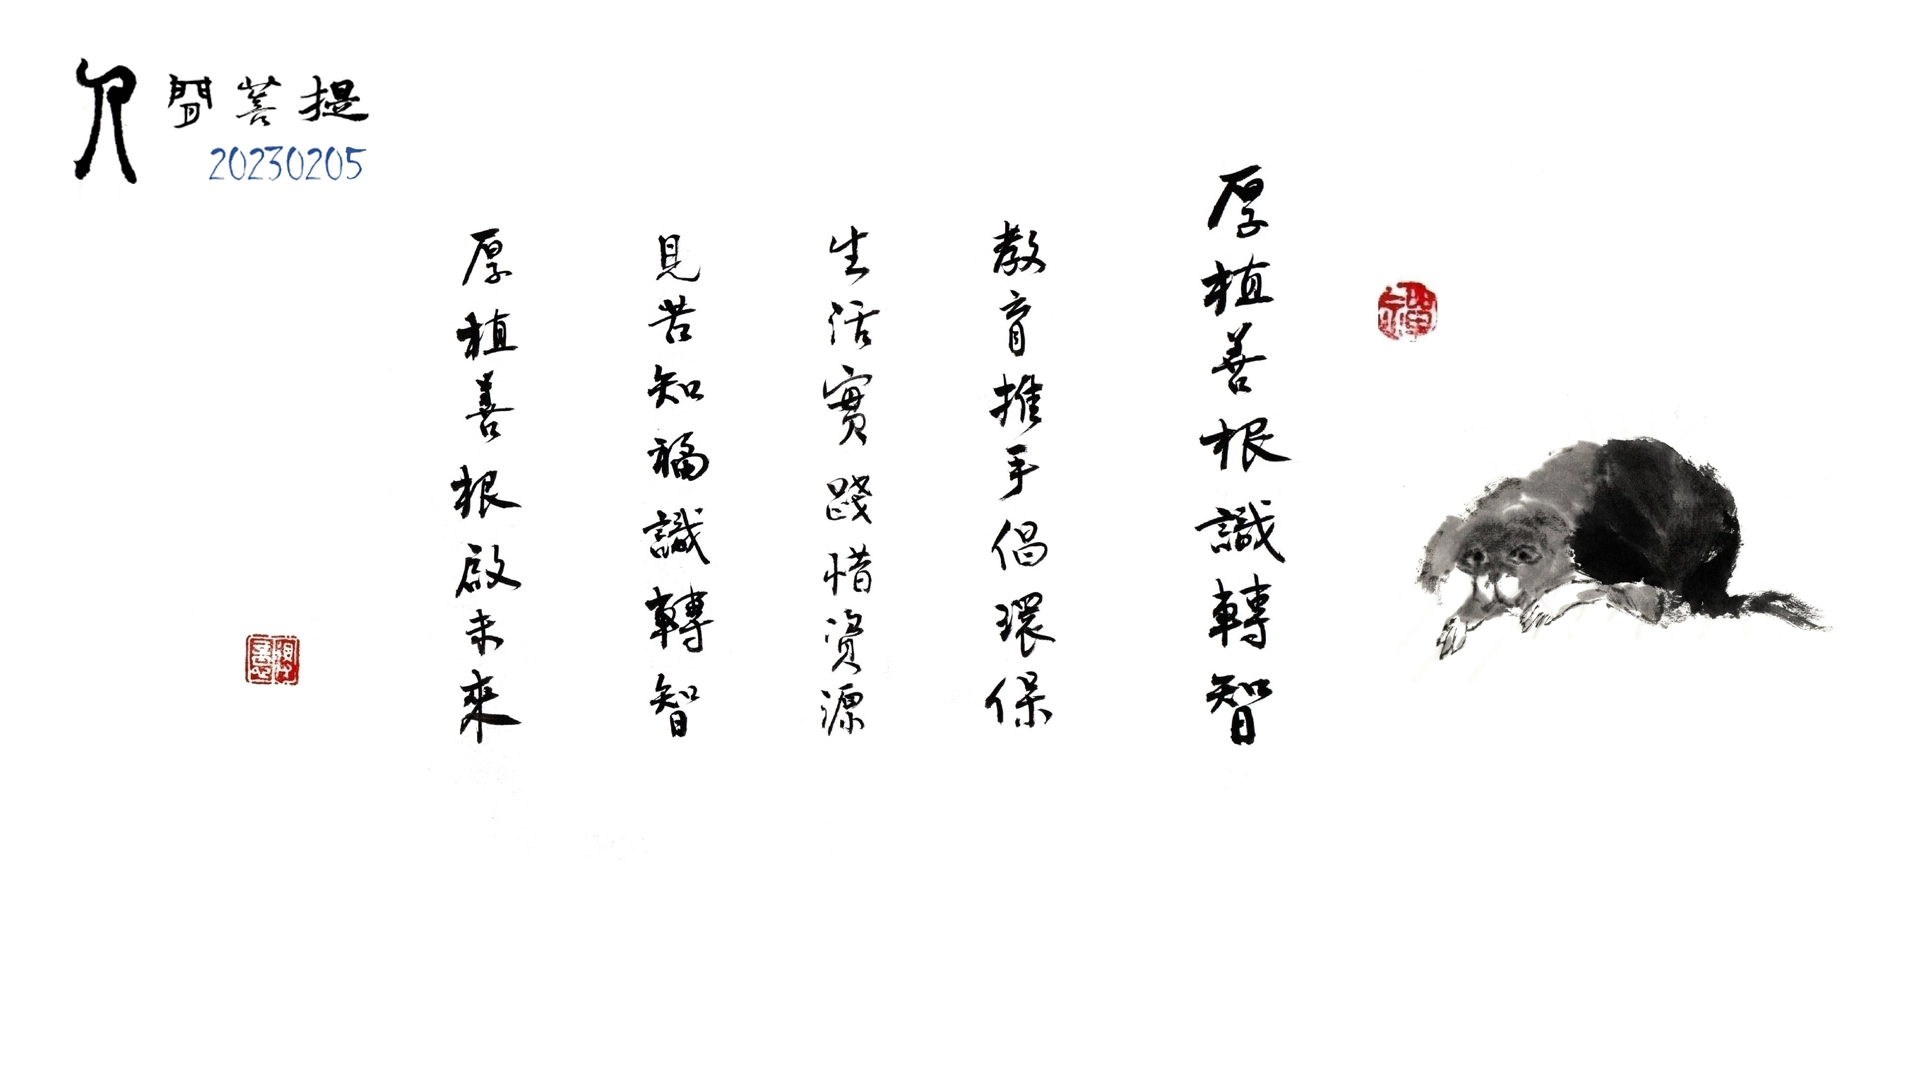 人間菩提
20230205
厚植善根識轉智
教育推手倡環保
生活實踐惜資源
見苦知福識轉智
厚植善根啟未來
禪